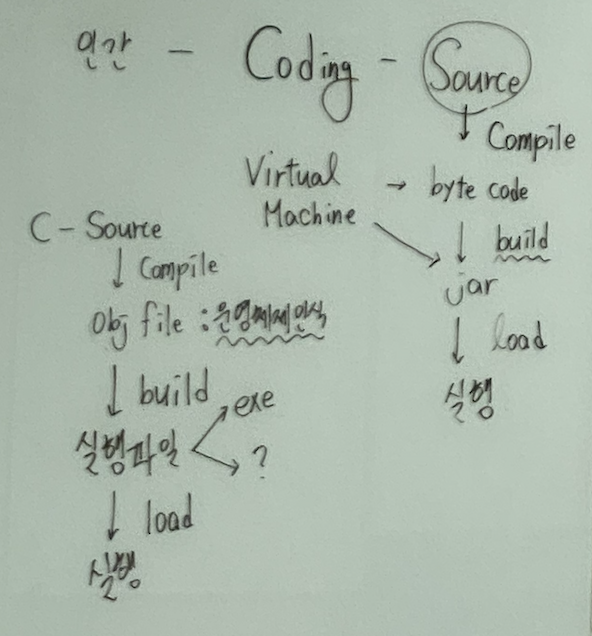 인간 - Coding - Source
↓ Compile
Virtual Machine → byte code
↓ build
jar
↓ load
실행
C - Source
↓ Compile
Obj file : 운영체제인식
↓ build
실행파일
exe
?
↓ load
실행